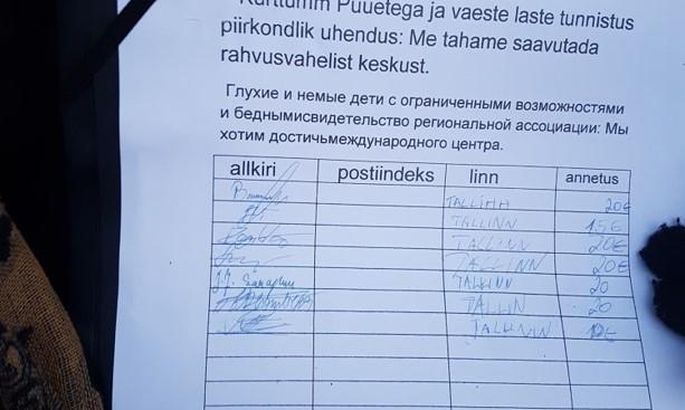 Kurttumm Puuetega ja vaeste laste tunnistus
piirkondlik uhendus: Me tahame saavutada
rahvusvahelist keskust.
Глухие и немые дети с ограниченными возможностями
и беднымисвидетельство региональной ассоциации: Мы
хотим достичьмеждународного центра.
allkiri postiindeks linn annetus
TALLINN 20€
TALLINN 15€
TALLINN 20€
TALLINN 20€
TALLINN 20
TALLIN 20